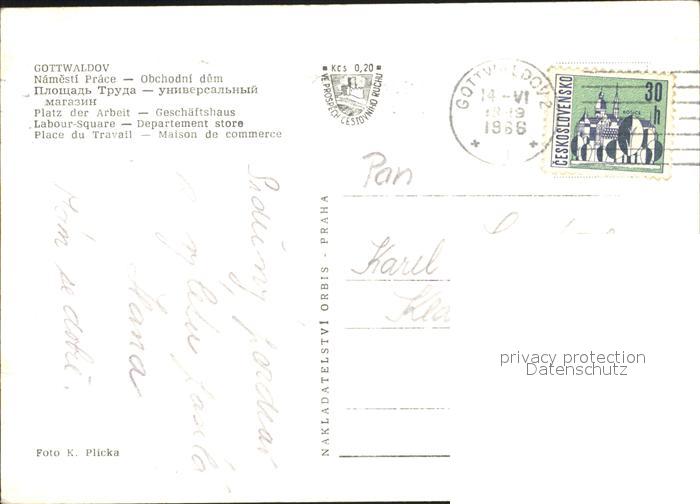 GOTTWALDOV
Náměstí Práce — Obchodní dům
Площадь Труда — универсальный
магазин
Platz der Arbeit — Geschäftshaus
Labour-Square — Departement store
Place du Travail — Maison de commerce
Kčs 0,20
VE PROSPĚCH CESTOVNÍHO RUCHU
GOTTWALDOV 2
14 -VI
1966
ČESKOSLOVENSKO
30
h
KOŠICE
Pan
Karel
NAKLADATELSTVÍ ORBIS - PRAHA
Srdečný pozdrav
z výletu
Hana
Mám se dobře.
privacy protection
Datenschutz
Foto K. Plicka